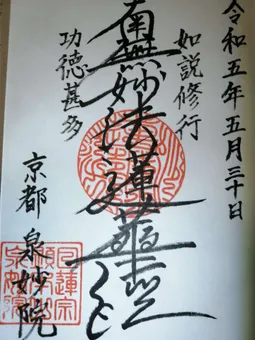 令和五年五月三十日
如説修行
南無妙法蓮華経
功徳甚多
京都 泉妙院